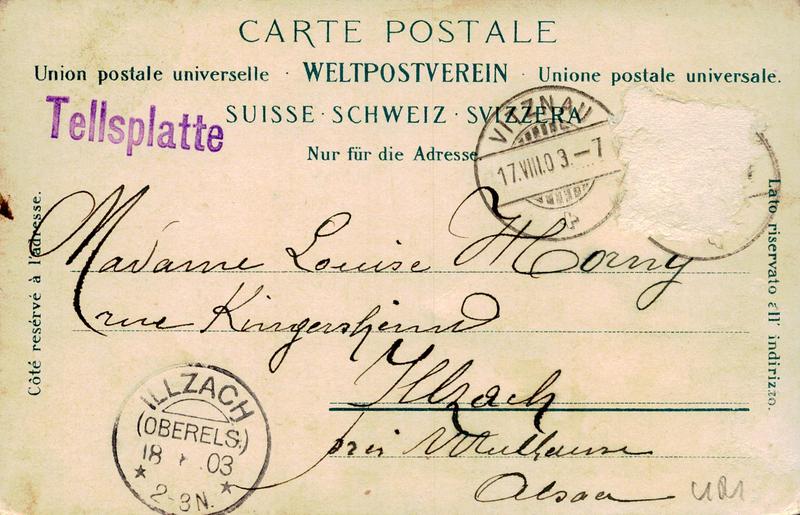 CARTE POSTALE
Union postale universelle · WELTPOSTVEREIN · Unione postale universale.
SUISSE · SCHWEIZ · SVIZZERA
Tellsplatte
Nur für die Adresse.
VITZNAU
17.VIII.03.–7
Côté resérvé à l'adresse.
Lato riservato all' indirizzo.
Madame Louise Horny
rue Kingersheim
Illzach
près Mulhouse
Alsace
ILLZACH
(OBERELS.)
18 03
2-3N.
URI